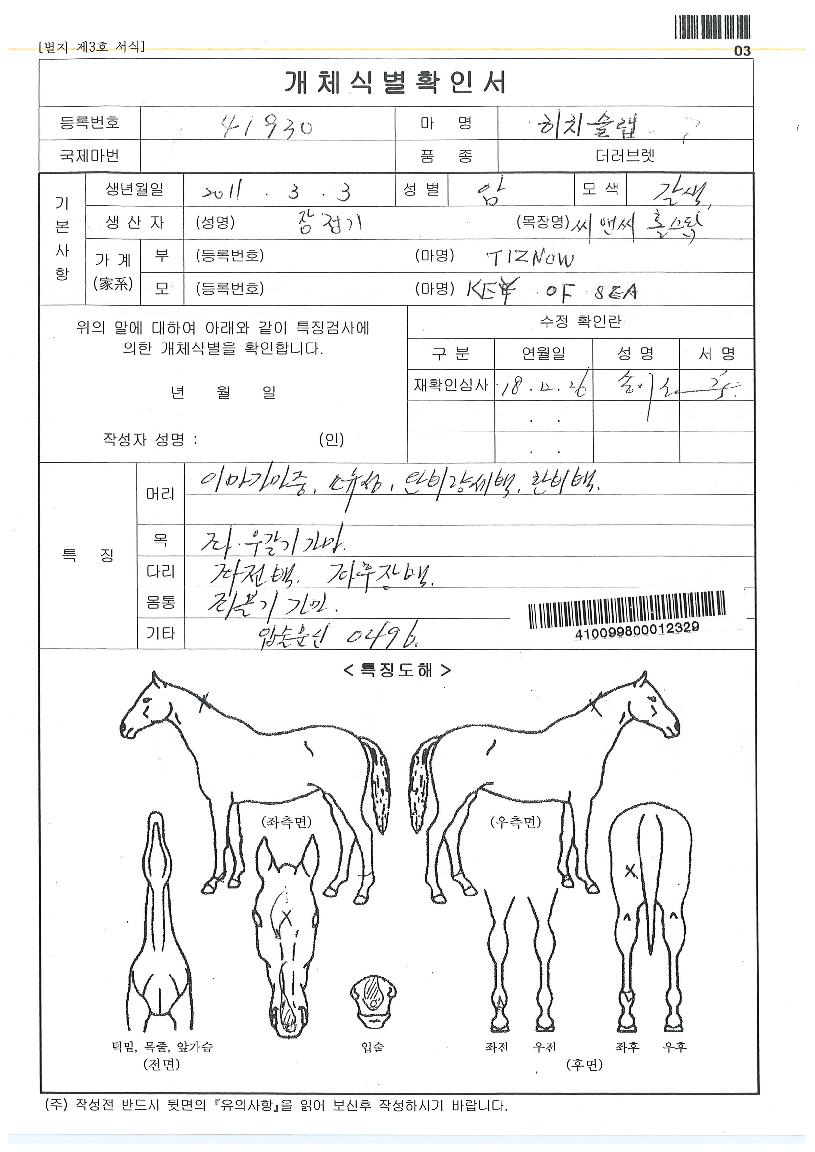 03
[별지 제3호 서식]
개체식별확인서
등록번호 41930 마 명 히치슬랩
국제마번 품 종 더러브렛
기본사항
생년월일 2011 . 3 . 3 성 별 암 모 색 갈색
생 산 자 (성명) (목장명) 씨앤씨
가 계 (家系) 부 (등록번호) (마명) TIZNOW
모 (등록번호) (마명) KEY OF SEA
위의 말에 대하여 아래와 같이 특징검사에
의한 개체식별을 확인합니다.
년 월 일
작성자 성명 : (인)
수정 확인란
구 분 연월일 성 명 서 명
재확인심사 18 . 12 . 26
. .
. .
특 징
머리
목 좌·우갈기가마.
다리 좌전백. 좌후장백.
몸통
기타 0496.
410099800012329
< 특징도해 >
(좌측면) (우측면)
턱밑, 목줄, 앞가슴 입술 좌전 우전 좌후 우후
(전면) (후면)
(주) 작성전 반드시 뒷면의 『유의사항』을 읽어 보신후 작성하시기 바랍니다.